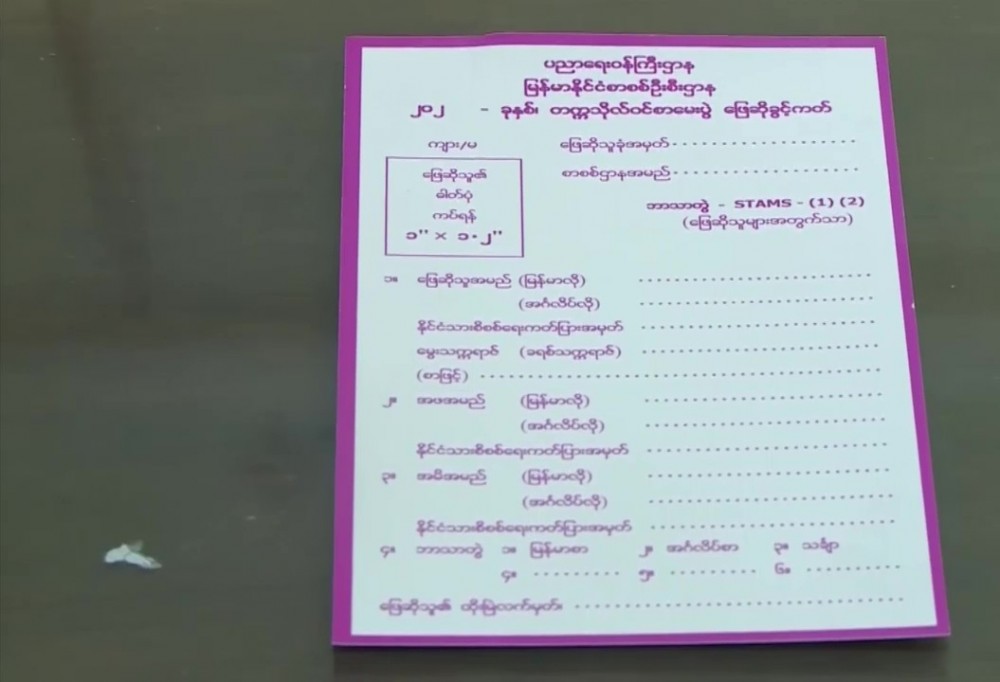 ပညာရေးဝန်ကြီးဌာန
မြန်မာနိုင်ငံစာစစ်ဦးစီးဌာန
၂၀၂ - ခုနှစ်၊ တက္ကသိုလ်ဝင်စာမေးပွဲ ဖြေဆိုခွင့်ကတ်
ကျား/မ
ဖြေဆိုသူခုံအမှတ်
ဖြေဆိုသူ၏
ဓါတ်ပုံ
ကပ်ရန်
၁" × ၁.၂"
စာစစ်ဌာနအမည်
ဘာသာတွဲ - STAMS - (1) (2)
(ဖြေဆိုသူများအတွက်သာ)
၁။ ဖြေဆိုသူအမည် (မြန်မာလို)
(အင်္ဂလိပ်လို)
နိုင်ငံသားစိစစ်ရေးကတ်ပြားအမှတ်
မွေးသက္ကရာဇ် (ခရစ်သက္ကရာဇ်)
(စာဖြင့်)
၂။ အဖအမည် (မြန်မာလို)
(အင်္ဂလိပ်လို)
နိုင်ငံသားစိစစ်ရေးကတ်ပြားအမှတ်
၃။ အမိအမည် (မြန်မာလို)
(အင်္ဂလိပ်လို)
နိုင်ငံသားစိစစ်ရေးကတ်ပြားအမှတ်
၄။ ဘာသာတွဲ ၁။ မြန်မာစာ ၂။ အင်္ဂလိပ်စာ ၃။ သင်္ချာ
၄။ ၅။ ၆။
ဖြေဆိုသူ၏ ထိုးမြဲလက်မှတ်၊